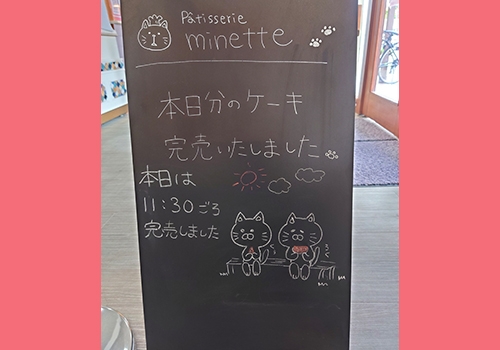 Pâtisserie
minette
本日分のケーキ
完売いたしました
本日は
11:30ごろ
完売しました